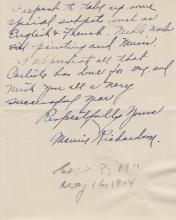 I expect to take up some
special subject such as
English & French. Needle work
oil painting and Music
I appreciate all that
Carlisle has done for me and
wish you all a very
successful year
Respectfully Yours
Richardson.
May 16, 1914